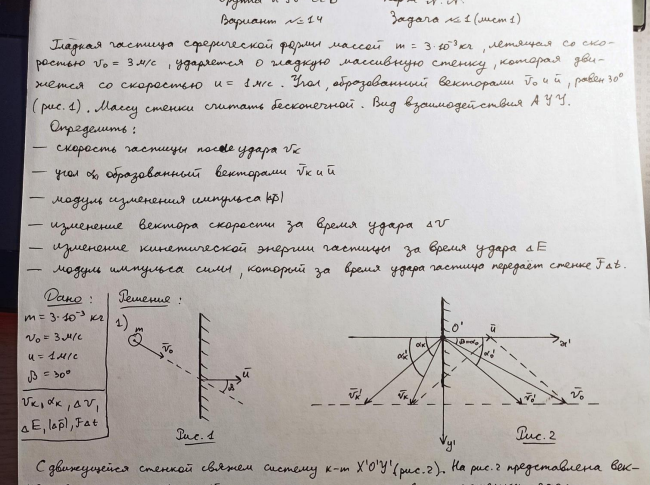 Вариант №14 Задача №1 (лист 1)
Гладкая частица сферической формы массой m = 3·10⁻³ кг, летящая со ско-
ростью v₀ = 3 м/с, ударяется о гладкую массивную стенку, которая дви-
жется со скоростью u = 1 м/с. Угол, образованный векторами v̄₀ и ū, равен 30°
(рис. 1). Массу стенки считать бесконечной. Вид взаимодействия АУУ.
Определить:
— скорость частицы после удара vк
— угол αк, образованный векторами v̄к и ū
— модуль изменения импульса |Δp̄|
— изменение вектора скорости за время удара ΔV
— изменение кинетической энергии частицы за время удара ΔE
— модуль импульса силы, который за время удара частица передаёт стенке F̄Δt.
Дано:
m = 3·10⁻³ кг
v₀ = 3 м/с
u = 1 м/с
β = 30°
vк, αк, Δv,
ΔE, |Δp̄|, FΔt
Решение:
1)
m
v̄₀
ū
β
Рис. 1
O'
ū
x'
αк'
αк
β=α₀
α₀'
v̄к'
v̄к
v̄₀'
v̄₀
y'
Рис. 2
С движущейся стенкой свяжем систему к-т X'O'Y' (рис. 2). На рис. 2 представлена век-